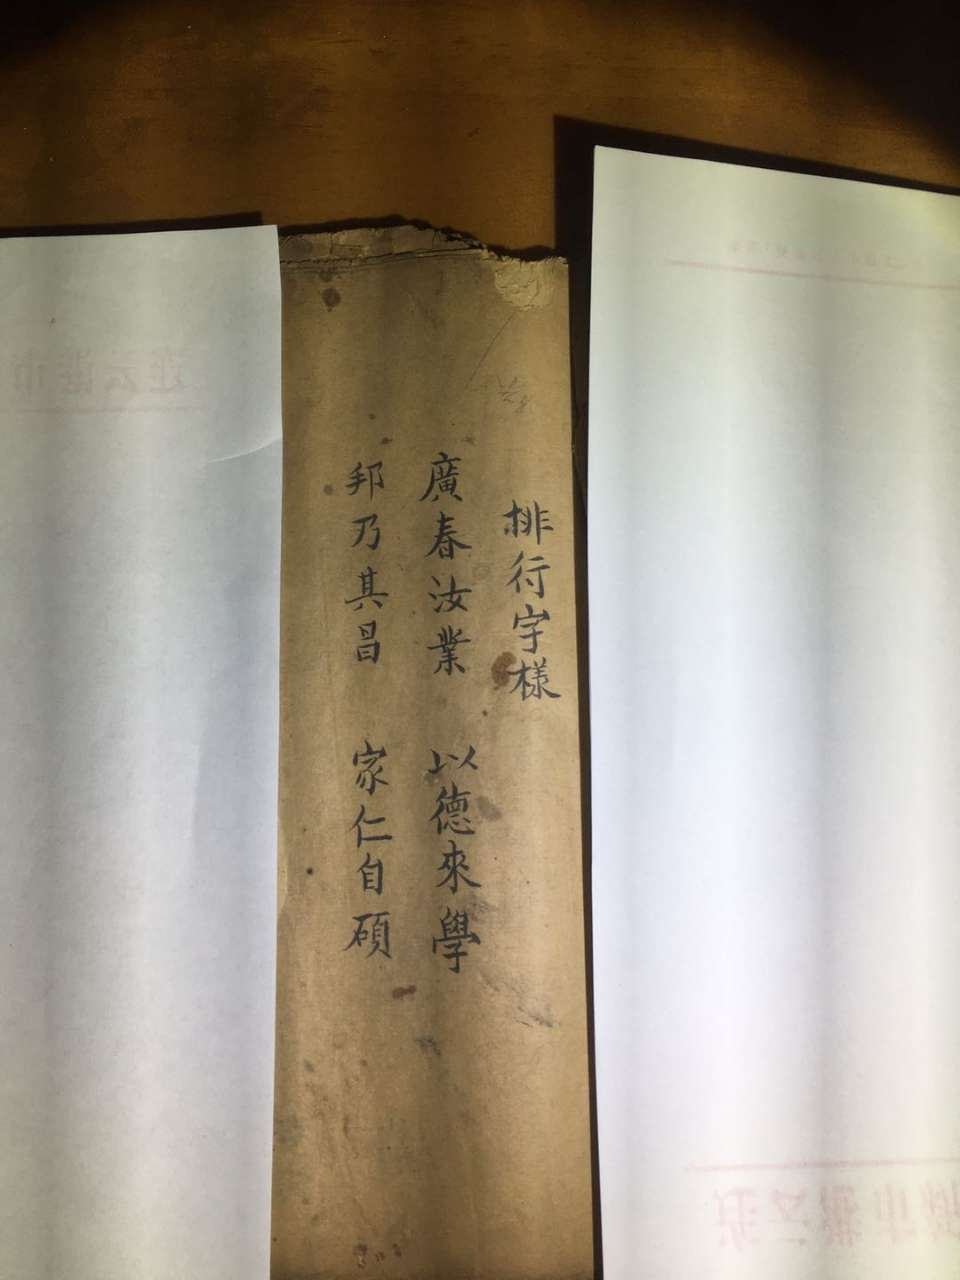 排行字樣
廣春汝業 以德來學
邦乃其昌 家仁自碩